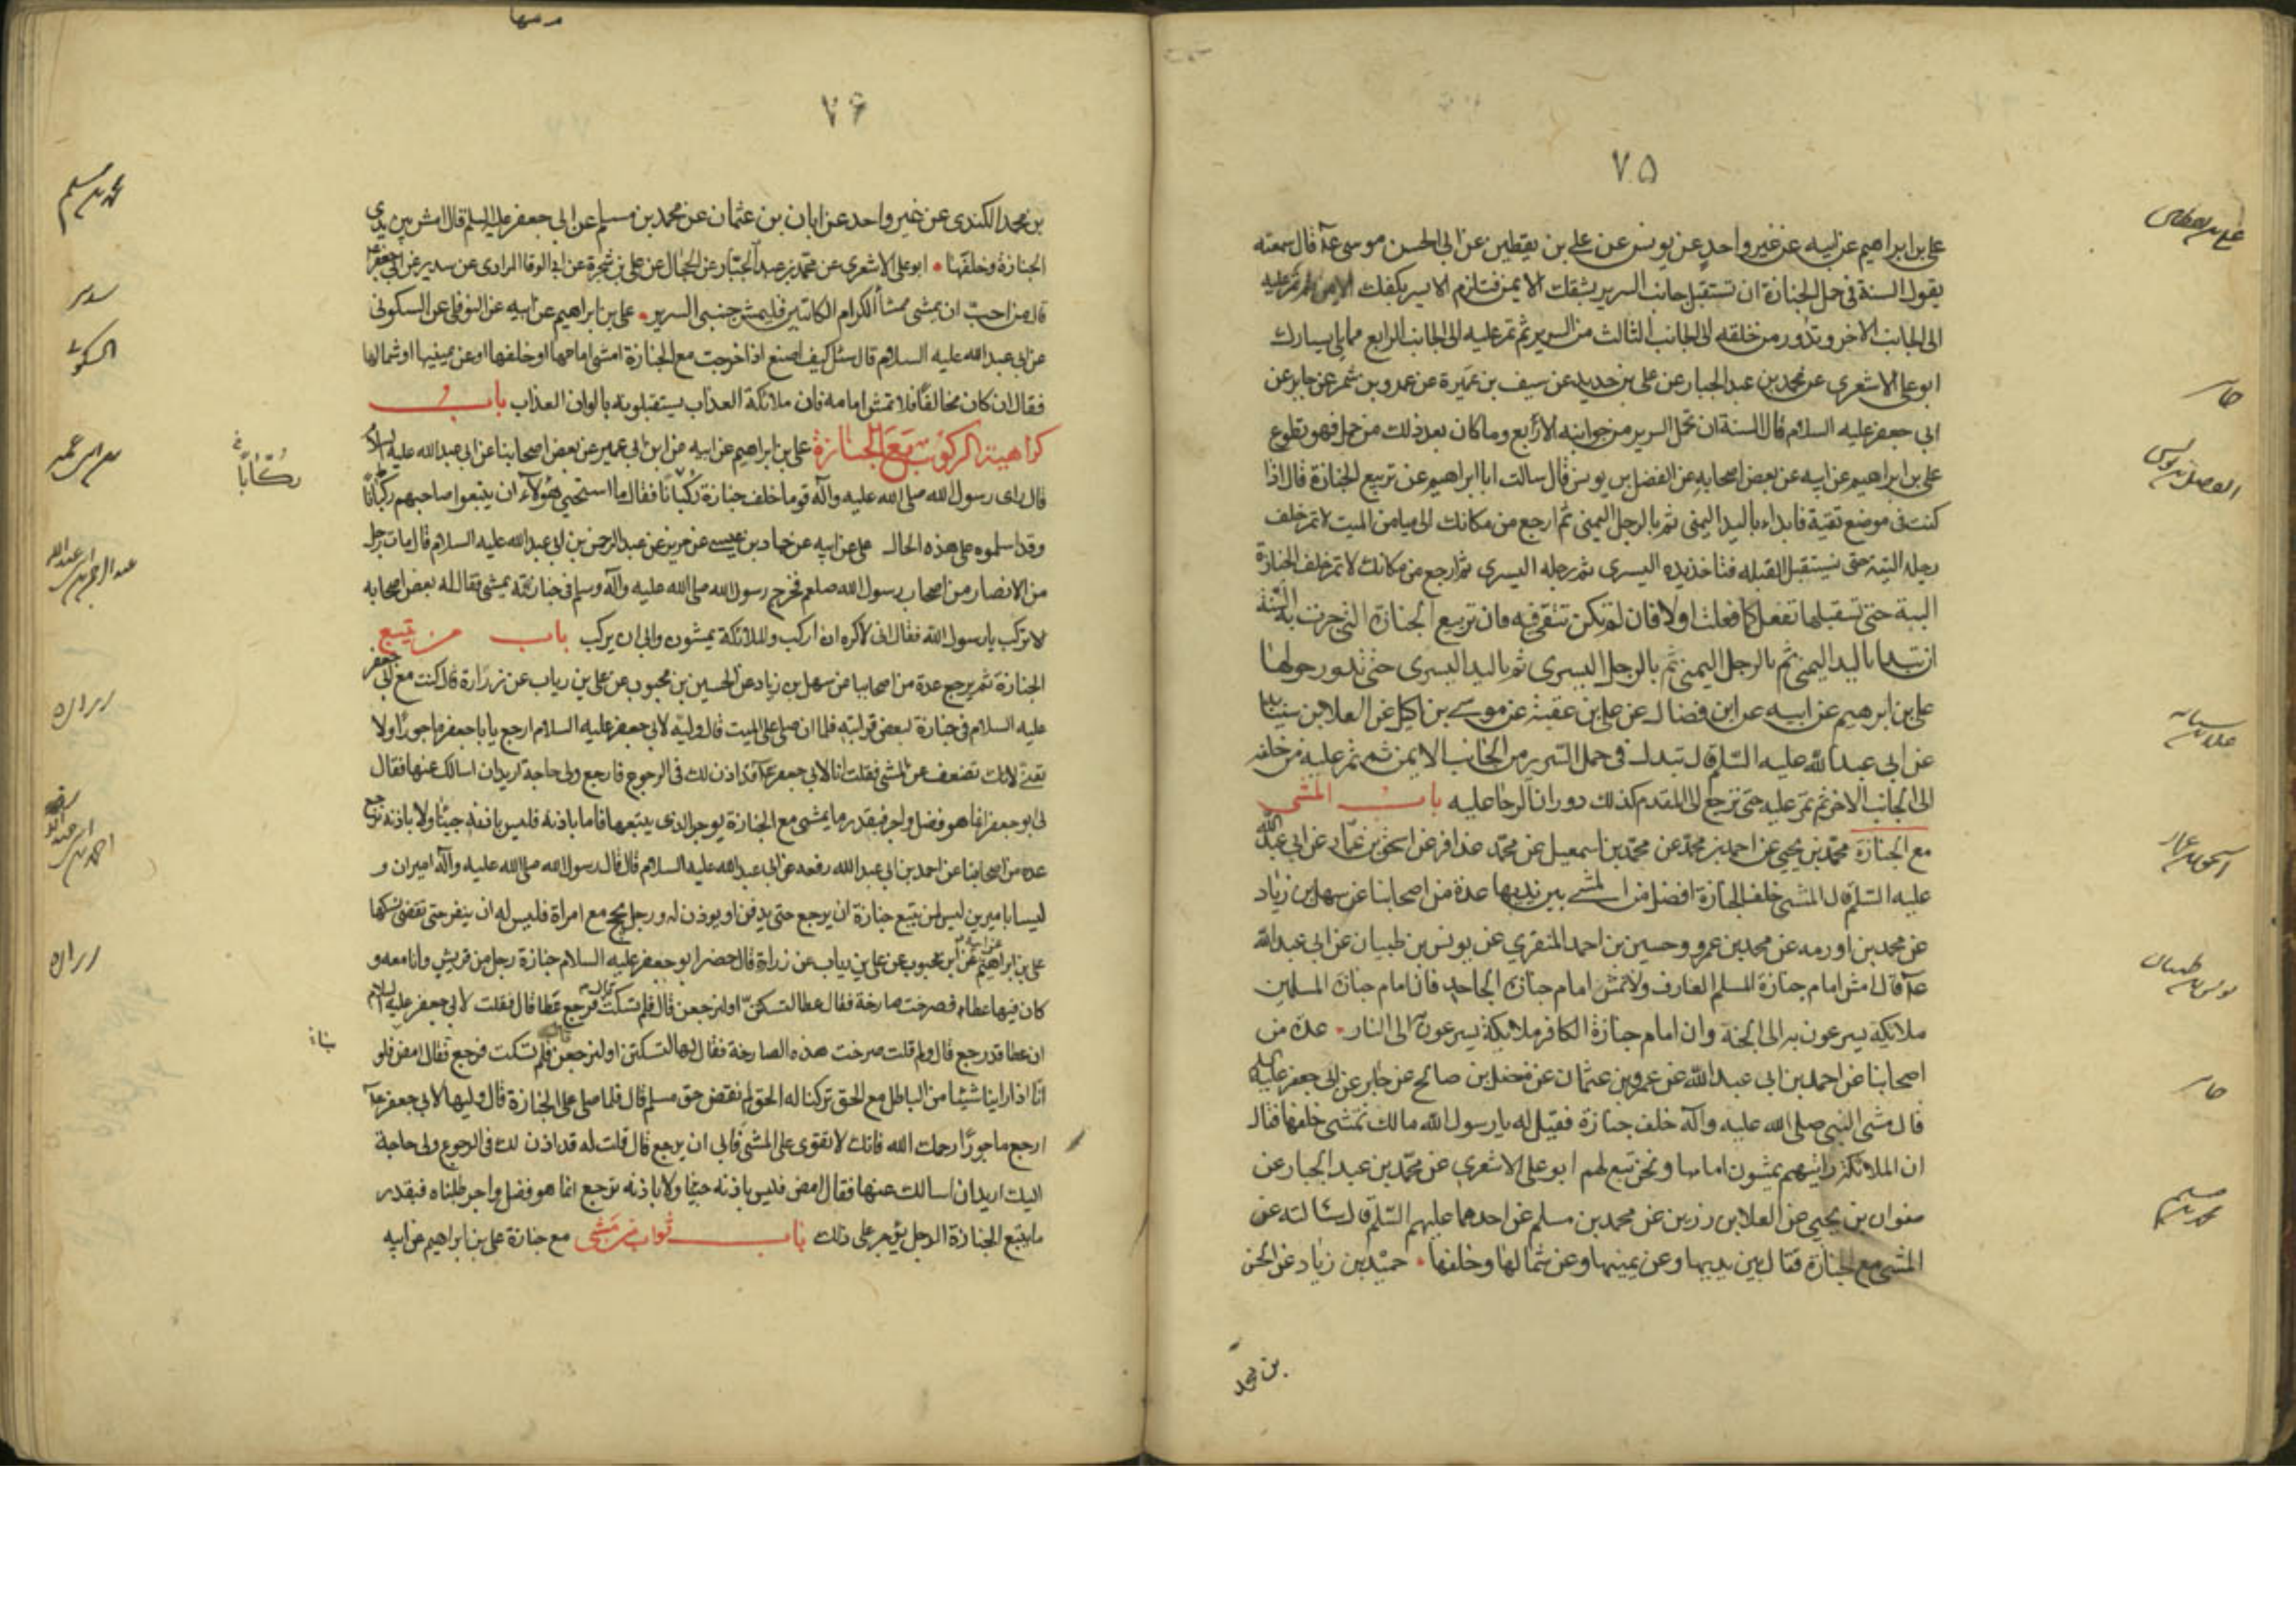 ٧٥
علي بن ابراهيم عن ابيه عن غير واحد عن يونس عن علي بن يقطين عن ابي الحسن موسى عآ قال سمعته
يقول السنة في حمل الجنازة ان تستقبل جانب السرير بشقك الايمن فتلزم الايسر بكفك الايمن ثم تمر عليه
الى الجانب الاخر وتدور من خلفه الى الجانب الثالث من السرير ثم تمر عليه الى الجانب الرابع مما يلي يسارك
ابو علي الاشعري عن محمد بن عبد الجبار عن علي بن حديد عن سيف بن عميرة عن عمرو بن شمر عن جابر عن
ابي جعفر عليه السلام قال السنة ان تحمل السرير من جوانبه الاربع وما كان بعد ذلك من حمل فهو تطوع
علي بن ابراهيم عن ابيه عن بعض اصحابه عن الفضل بن يونس قال سالت ابا ابراهيم عن تربيع الجنازة قال اذا
كنت في موضع تقية فابداء باليد اليمنى ثم بالرجل اليمنى ثم ارجع من مكانك الى ميامن الميت لا تمر خلف
رجليه البتة حتى تستقبل القبله فتاخذ يده اليسرى ثم رجله اليسرى ثم ارجع من مكانك لا تمر خلف الجنازة
البتة حتى تستقبلها تفعل كما فعلت اولا فان لم تكن تتقي فيه فان تربيع الجنازة التي جرت به السنة
ان تبدا باليد اليمنى ثم بالرجل اليمنى ثم بالرجل اليسرى ثم باليد اليسرى حتى تدور حولها
علي بن ابرهيم عن ابيه عن ابن فضال عن علي بن عقبة عن موسى بن اكيل عن العلا بن سيابة
عن ابي عبد الله عليه السلم قال تبدا في حمل السرير من الجانب الايمن ثم تمر عليه من خلفه
الى الجانب الاخر ثم تمر عليه حتى ترجع الى المقدم كذلك دوران الرحا عليه باب المشي
مع الجنازة محمد بن يحيى عن احمد بن محمد عن محمد بن اسمعيل عن محمد عذافر عن اسحق بن عمار عن ابي عبد الله
عليه السلم قال المشي خلف الجنازة افضل من المشي بين يديها عدة من اصحابنا عن سهل بن زياد
عن محمد بن اورمه عن محمد بن عمرو وحسين بن احمد المنقري عن يونس بن ظبيان عن ابي عبد الله
عآ قال امش امام جنازة المسلم العارف ولا تمش امام جنازة الجاحد فان امام جنازة المسلمين
ملائكة يسرعون به الى الجنة وان امام جنازة الكافر ملائكة يسرعون الى النار عدة من
اصحابنا عن احمد بن ابي عبد الله عن عمرو بن عثمان عن مفضل بن صالح عن جابر عن ابي جعفر عليه
قال مشى النبي صلى الله عليه وآله خلف جنازة فقيل له يا رسول الله مالك تمشي خلفها فقال
ان الملائكة رايتهم يمشون امامها ونحن تبع لهم ابو علي الاشعري عن محمد بن عبد الجبار عن
صفوان بن يحيى عن العلا بن رزين عن محمد بن مسلم عن احدهما عليهم السلم قال سالته عن
المشي مع الجنازة فقال بين يديها وعن يمينها وعن شمالها وخلفها حميد بن زياد عن الحسن
بن محمد
علي بن يقطين
جابر
الفضل بن يونس
علا بن سيابة
اسحق بن عمار
يونس بن ظبيان
جابر
محمد بن مسلم
٧۶
بن محمد الكندي عن غير واحد عن ابان بن عثمان عن محمد بن مسلم عن ابي جعفر عليه السلم قال امش بين يدي
الجنازة وخلفها ابو علي الاشعري عن محمد بن عبد الجبار عن الحجال عن علي بن شجرة عن ابي الوفا المرادي عن سدير عن ابي جعفر
قال من احب ان يمشي ممشا الكرام الكاتبين فليمش جنبي السرير علي بن ابراهيم عن ابيه عن النوفلي عن السكوني
عن ابي عبد الله عليه السلام قال سئل كيف اصنع اذا خرجت مع الجنازة امشي امامها او خلفها او عن يمينها او شمالها
فقال ان كان مخالفا فلا تمش امامه فان ملائكة العذاب يستقبلونه بالوان العذاب باب
كراهية الركوب مع الجنازة علي بن ابراهيم عن ابيه عن ابن ابي عمير عن بعض اصحابنا عن ابي عبد الله عليه السلام
قال راى رسول الله صلى الله عليه وآله قوما خلف جنازة ركبانا فقال ما استحيى هؤلاء ان يتبعوا صاحبهم ركبانا
وقد اسلموه على هذه الحال علي عن ابيه عن حماد بن عيسى عن حريز عن عبد الرحمن بن ابي عبد الله عليه السلام قال مات رجل
من الانصار من اصحاب رسول الله صلعم فخرج رسول الله صلى الله عليه وآله وسلم في جنازته يمشي فقال له بعض اصحابه
لا تركب يا رسول الله فقال اني لاكره ان اركب والملائكة يمشون وابى ان يركب باب من يتبع
الجنازة ثم يرجع عدة من اصحابنا عن سهل بن زياد عن الحسين بن محبوب عن علي بن رياب عن زرارة قال كنت مع ابي جعفر
عليه السلام في جنازة لبعض قرابته فلما ان صلى على الميت قال وليه لابي جعفر عليه السلام ارجع يا با جعفر ماجورا ولا
تعنى لانك تضعف عن المشي فقلت انا لابي جعفر عآ قد اذن لك في الرجوع فارجع ولي حاجة اريد ان اسالك عنها فقال
لي ابو جعفر انما هو فضل واجر فبقدر ما يمشي مع الجنازة يوجر الذي يتبعها فاما باذنه فليس باذنه جئنا ولا باذنه نرجع
عدة من اصحابنا عن احمد بن ابي عبد الله رفعه عن ابي عبد الله عليه السلام قال قال رسول الله صلى الله عليه وآله اميران و
ليسا باميرين ليس لمن يتبع جنازة ان يرجع حتى يدفن او يوذن له ورجل يحج مع امراة فليس له ان ينفر حتى تقضي نسكها
علي بن ابراهيم عن ابيه عن ابن محبوب عن علي بن رياب عن زرارة قال حضر ابو جعفر عليه السلام جنازة رجل من قريش وانا معه و
كان فيها عطاء فصرخت صارخة فقال عطا لتسكتن او لنرجعن قال فلم تسكت فرجع عطا قال فقلت لابي جعفر عليه السلام
ان عطا قد رجع قال ولم قلت صرخت هذه الصارخة فقال لها لتسكتن او لنرجعن فلم تسكت فرجع فقال امض فلو
انا اذا راينا شيئا من الباطل مع الحق تركنا له الحق لم نقض حق مسلم قال فلما صلى على الجنازة قال وليها لابي جعفر عآ
ارجع ماجورا رحمك الله فانك لا تقوى على المشي فابى ان يرجع قال قلت له قد اذن لك في الرجوع ولي حاجة
اليك اريد ان اسالك عنها فقال امض فليس باذنه جينا ولا باذنه نرجع انما هو فضل واجر طلبناه فبقدر
ما يتبع الجنازة الرجل يؤجر على ذلك باب ثواب من مشى مع جنازة علي بن ابراهيم عن ابيه
محمد بن مسلم
سدير
السكوني
ركابا
عبد الرحمن بن ابي عبد الله
زراره
احمد بن ابي عبد الله
زراره